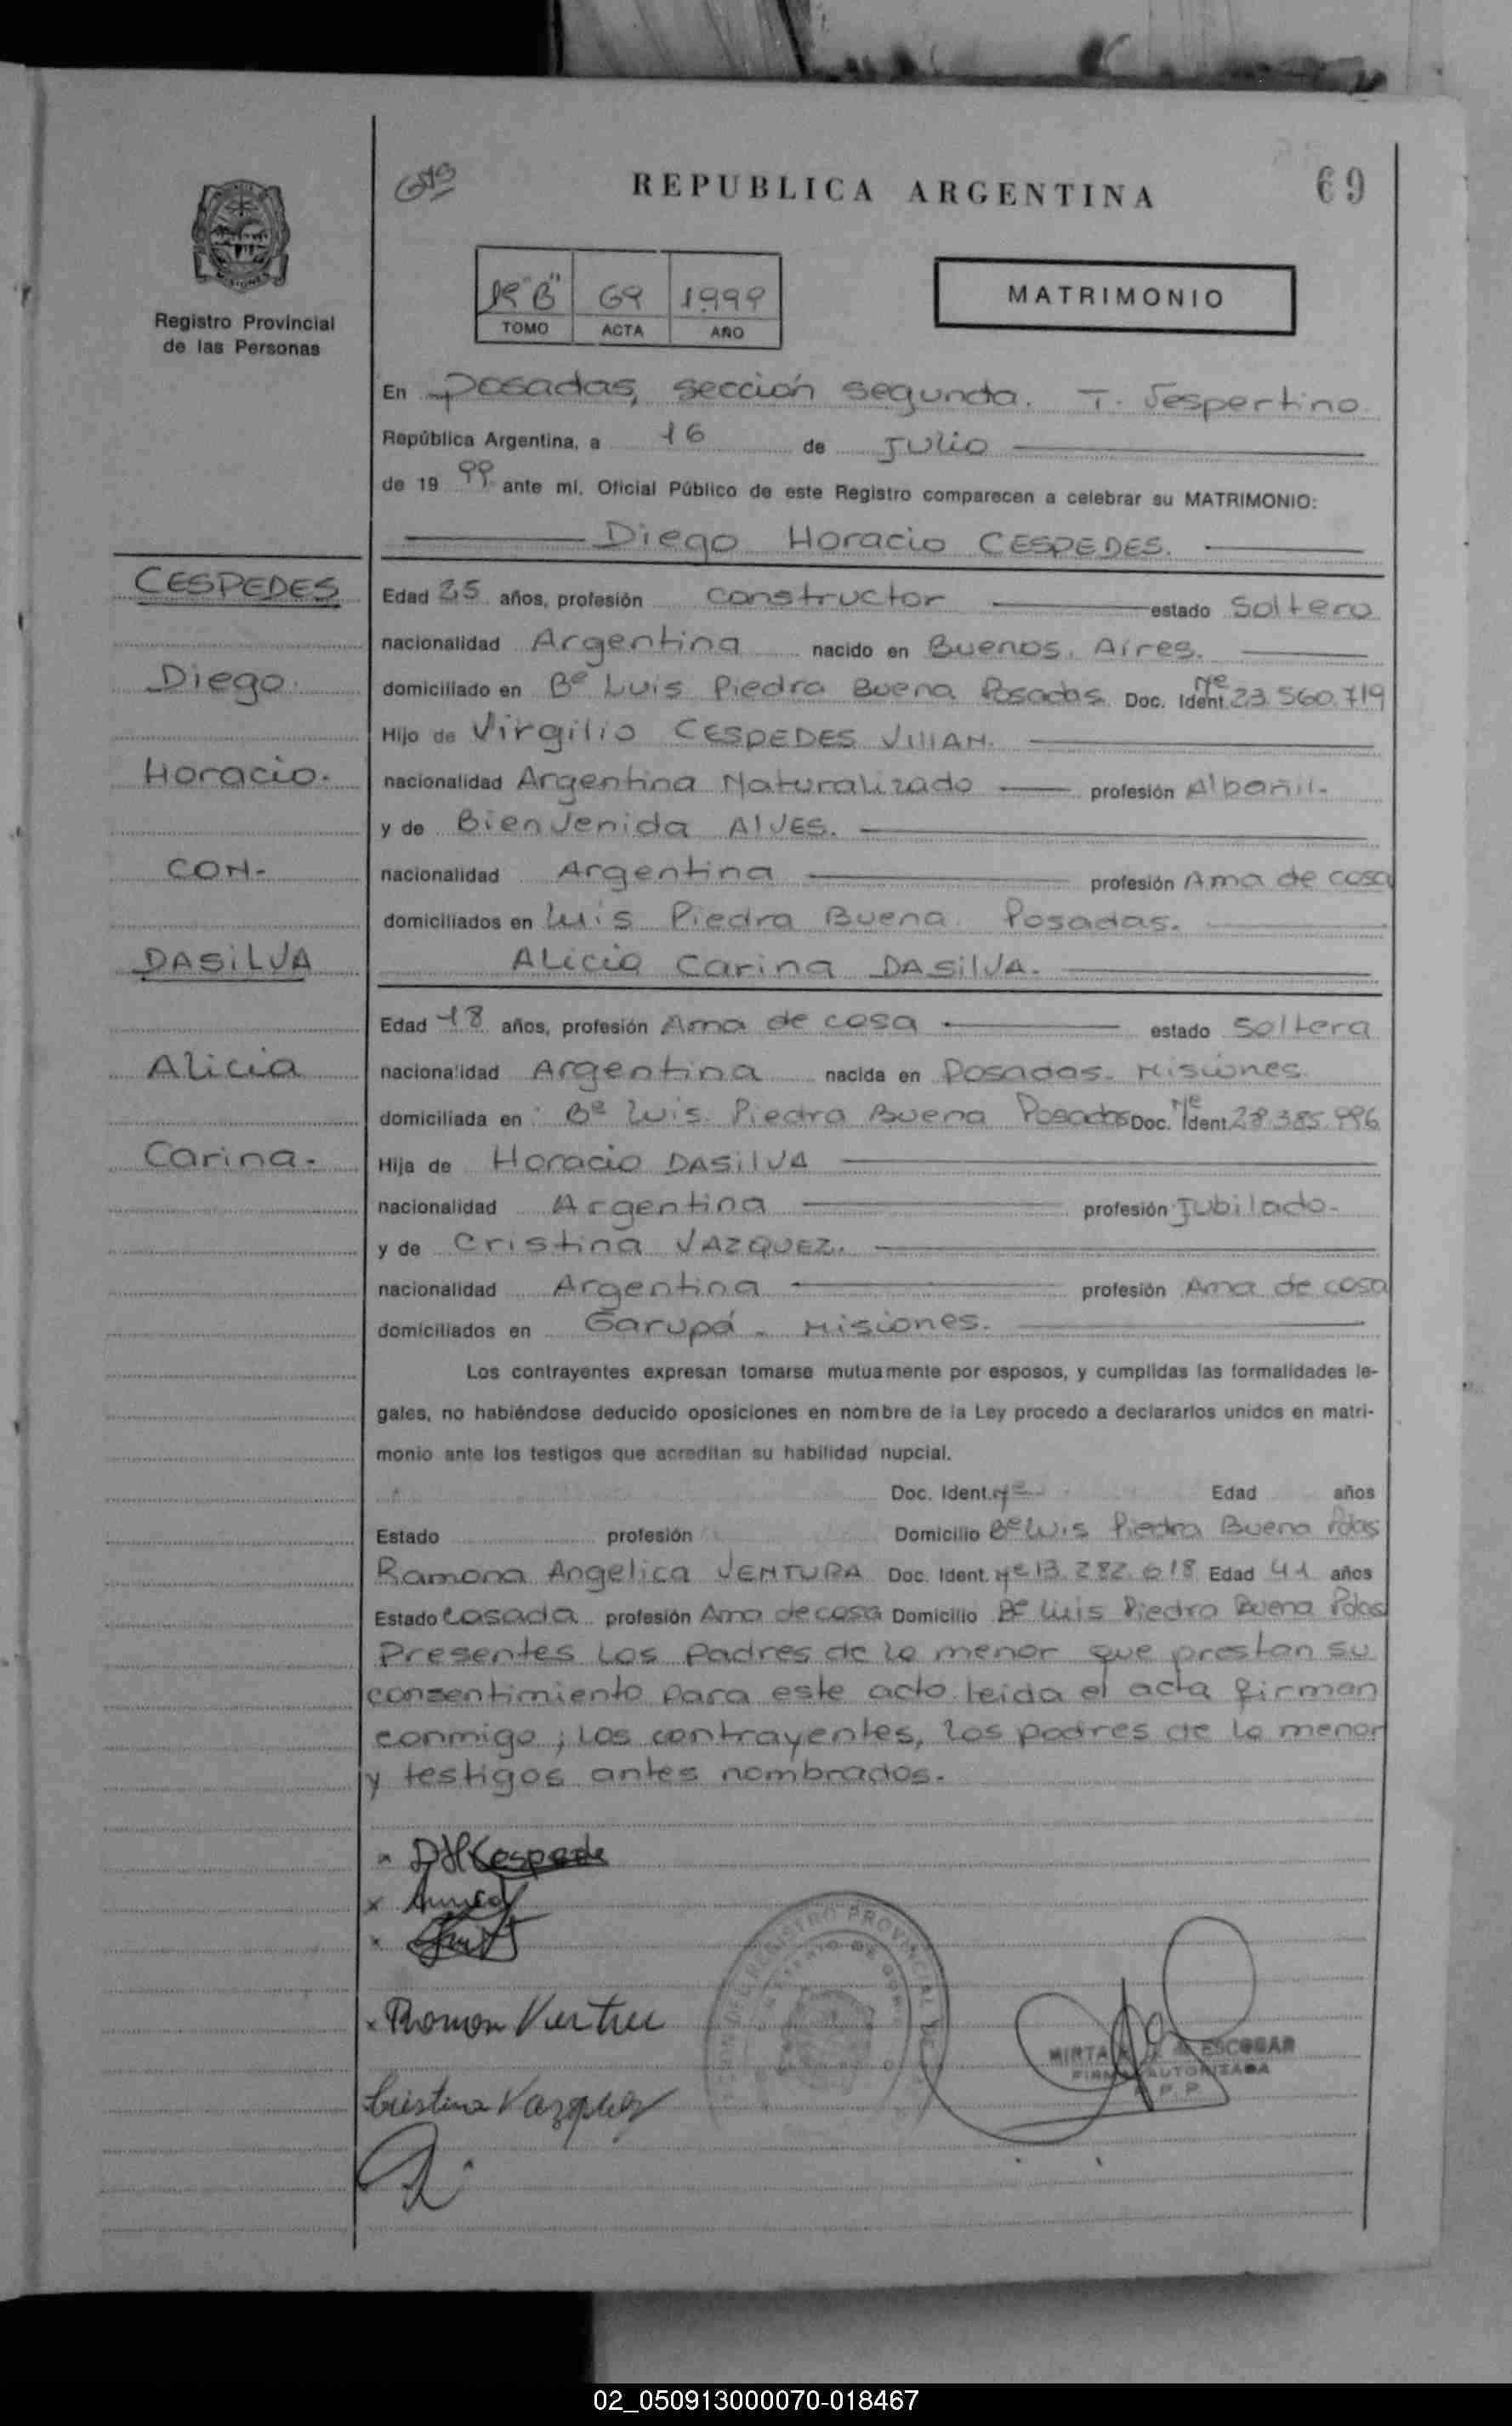 REPUBLICA ARGENTINA
69
MISIONES
Registro Provincial
de las Personas
"B" 69 1999
TOMO ACTA AÑO
MATRIMONIO
En Posadas, sección segunda. T. Vespertino
República Argentina, a 16 de Julio
de 19 99 ante mí, Oficial Público de este Registro comparecen a celebrar su MATRIMONIO:
Diego Horacio CESPEDES.
CESPEDES
Diego
Horacio.
CON-
DASILVA
Alicia
Carina.
Edad 25 años, profesión Constructor estado Soltero
nacionalidad Argentina nacido en Buenos Aires.
domiciliado en Bº Luis Piedra Buena Posadas Doc. Ident Nº 23.560.719
Hijo de Virgilio CESPEDES
nacionalidad Argentina Naturalizado profesión Albañil.
y de Bienvenida AlVES.
nacionalidad Argentina profesión Ama de casa
domiciliados en Luis Piedra Buena Posadas.
Alicia Carina DASilVA.
Edad 18 años, profesión Ama de casa estado Soltera
nacionalidad Argentina nacida en Posadas. Misiones
domiciliada en Bº Luis Piedra Buena Posadas Doc. Ident Nº 28.385.996
Hija de Horacio DASilVA
nacionalidad Argentina profesión Jubilado.
y de Cristina VAZQUEZ.
nacionalidad Argentina profesión Ama de casa
domiciliados en Garupá - Misiones.
Los contrayentes expresan tomarse mutuamente por esposos, y cumplidas las formalidades le-
gales, no habiéndose deducido oposiciones en nombre de la Ley procedo a declararlos unidos en matri-
monio ante los testigos que acreditan su habilidad nupcial.
Doc. Ident. Nº Edad años
Estado profesión Domicilio Bº Luis Piedra Buena Pdas
Ramona Angelica VENTURA Doc. Ident. Nº 13.282.618 Edad 41 años
Estado Casada profesión Ama de casa Domicilio Bº Luis Piedra Buena Pdas
Presentes los padres de la menor que prestan su
consentimiento para este acto leida el acta firman
conmigo; los contrayentes, los padres de la menor
y testigos antes nombrados.
Cristina Vazquez
REGISTRO PROVINCIAL DE
MIRTA ESCOBAR
FIRMA AUTORIZADA
02_050913000070-018467